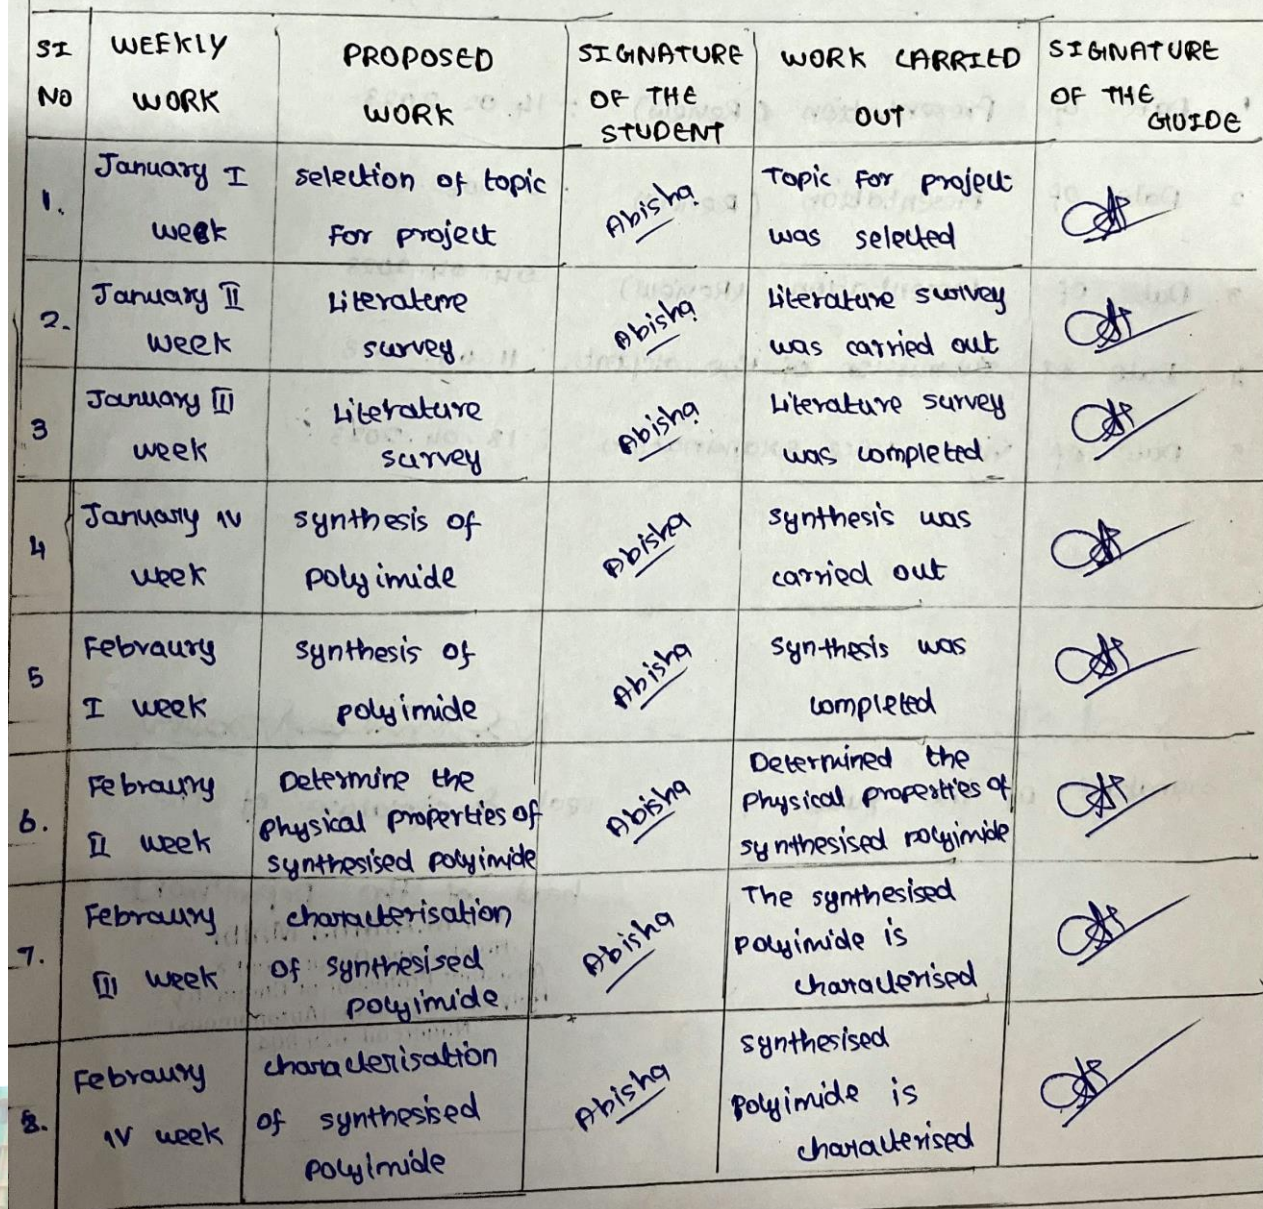 SI NO
WEEKLY WORK
PROPOSED WORK
SIGNATURE OF THE STUDENT
WORK CARRIED OUT
SIGNATURE OF THE GUIDE
1.
January I week
selection of topic for project
Abisha
Topic for project was selected
2.
January II week
Literature survey.
Abisha
Literature survey was carried out
3
January III week
Literature survey
Abisha
Literature survey was completed
4
January IV week
synthesis of polyimide
Abisha
synthesis was carried out
5
Febraury I week
synthesis of polyimide
Abisha
synthesis was completed
6.
Febraury II week
Determine the physical properties of synthesised polyimide
Abisha
Determined the physical properties of synthesised polyimide
7.
Febraury III week
characterisation of synthesised polyimide.
Abisha
The synthesised polyimide is characterised
8.
Febraury IV week
characterisation of synthesised polyimide
Abisha
synthesised polyimide is characterised